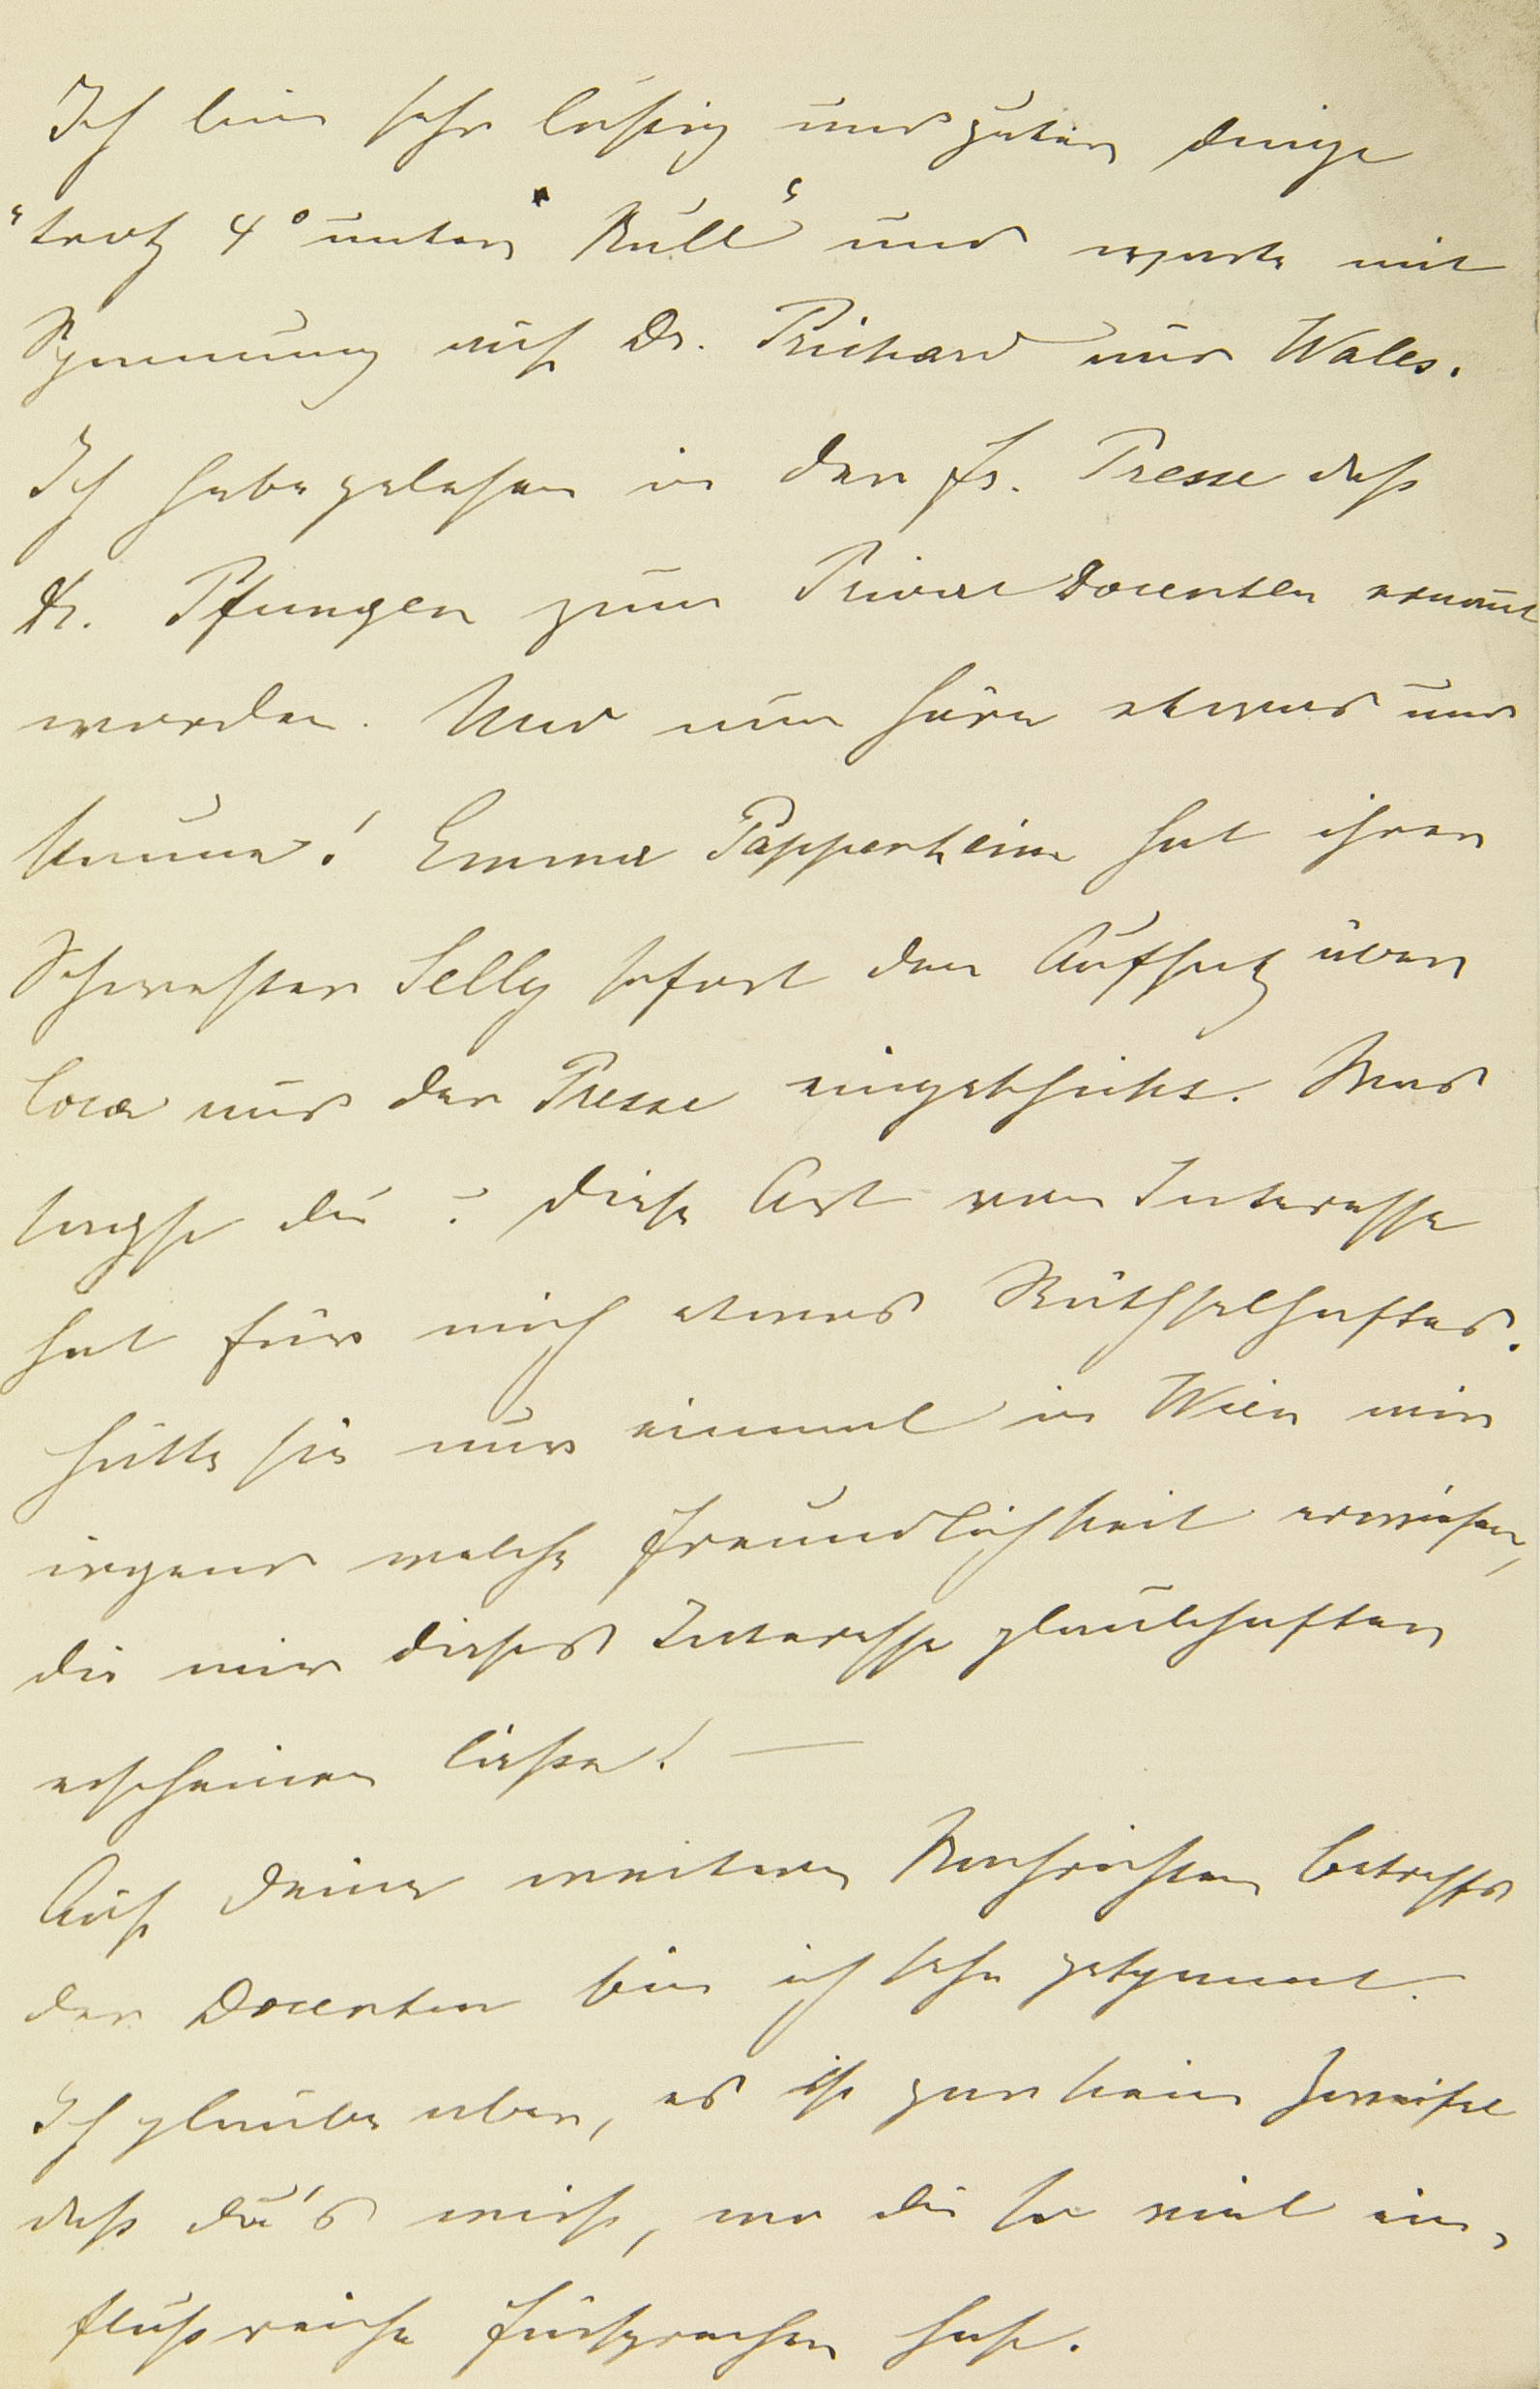 Ich bin sehr lustig und guter Dinge
"trotz 4° unter "Null" und warte mit
Spannung auf Dr. Prichard aus Wales.
Ich habe gelesen in der fr. Presse daß
Dr. Pfungen zum Privat Docenten ernañt
worden. Und nun höre etwas und
staune! Emma Pappenheim hat ihrer
Schwester Selly sofort den Aufsatz über
Coca aus der Presse eingeschickt. Was
sagst du? Diese Art von Interesse
hat für mich etwas Räthselhaftes.
Hätte sie nur einmal in Wien mir
irgend welche Freundlichkeit erwiesen,
die mir dieses Interesse glaubhafter
erscheinen ließe! —
Auf Deine weiteren Nachrichten betreffs
der Docentur bin ich sehr gespannt.
Ich glaube aber, es ist gar kein Zweifel
daß du's wirst, wo du so viel ein-
flußreiche Fürsprecher hast.